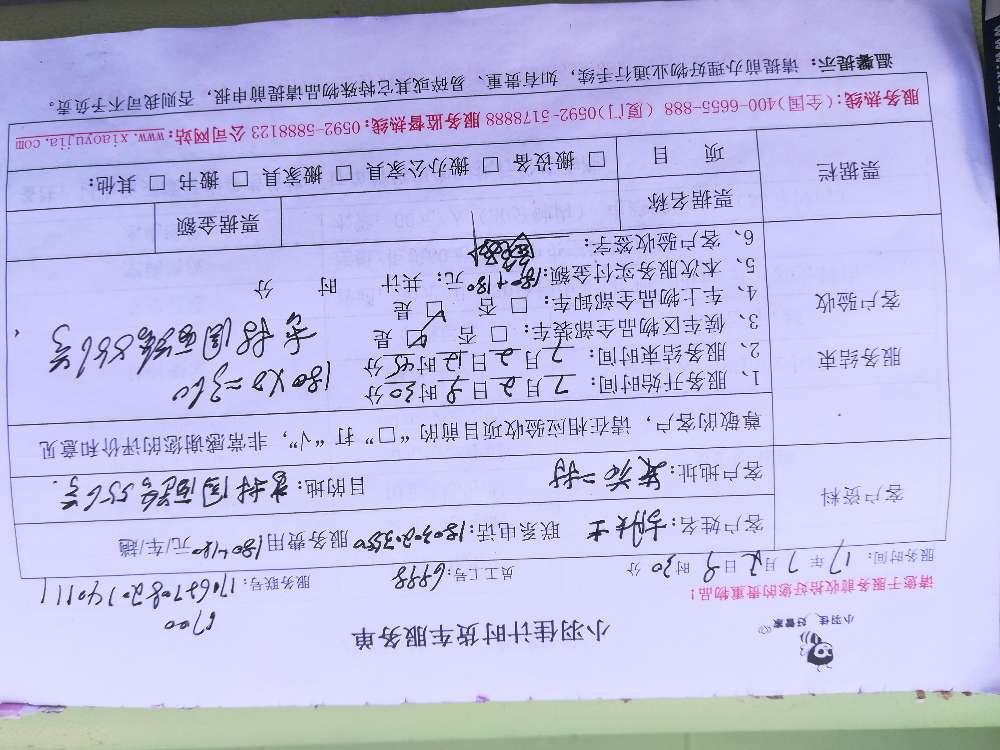 小羽佳 好管家
小羽佳计时货车服务单
6700
请您于服务前收拾好您的贵重物品！
服务时间：17年7月2日9时30分 员工汇号：6998 服务联号：
客户资料
客户姓名： 联系电话： 服务费用180+180元/车/趟
客户地址： 目的地：
尊敬的客户，请在相应验收项目前的“□”打“√”，非常感谢您的评价和意见
服务结束
客户验收
1、服务开始时间：7月2日9时30分
180×2=360
2、服务结束时间：7月2日12时45分
3、候车区物品全部装车：□ 否 □ 是
4、车上物品全部卸车：□ 否 □ 是
5、本次服务实付金额：180+180元；共计 时 分
6、客户验收签字：
票据栏
票据名称 票据金额
项 目 □ 搬设备 □ 搬办公家具 □ 搬家具 □ 搬书 □ 其他：
服务热线：(全国)400-6655-888 (厦门)0592-5178888 服务监督热线：0592-5888123 公司网站：www.xiaoyujia.com
温馨提示：请提前办理好物业通行手续，如有贵重、易碎或其它特殊物品请提前申报，否则我司可不予负责。